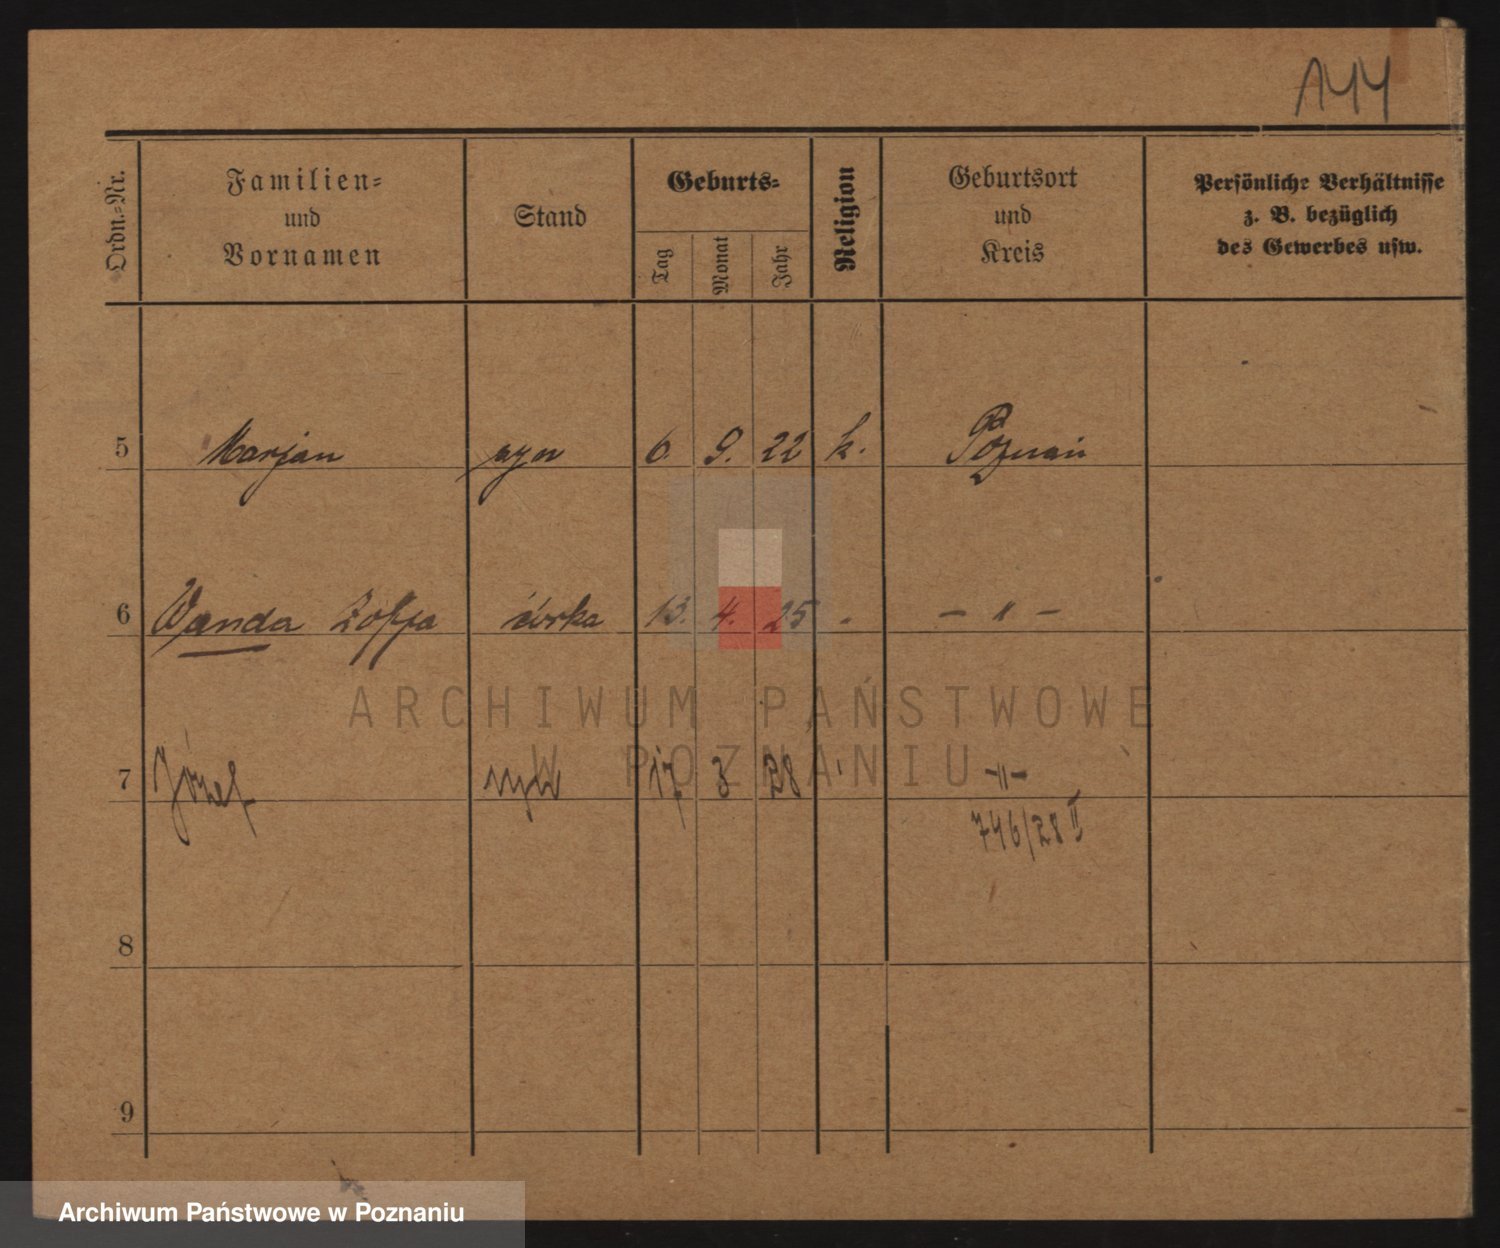 144
Ordn.-Nr.
Familien-
und
Vornamen
Stand
Geburts-
Tag
Monat
Jahr
Religion
Geburtsort
und
Kreis
Persönliche Verhältnisse
z. B. bezüglich
des Gewerbes usw.
5 Marjan syn 6. 9. 22 k. Poznań
6 Wanda Zofja córka 13. 4. 25 " — " —
ARCHIWUM PAŃSTWOWE
W POZNANIU
7 Józef syn 17 3 28 ' -"-
746/28 II
8
9
Archiwum Państwowe w Poznaniu